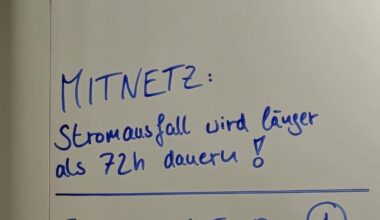 MITNETZ:
Stromausfall wird länger
als 72h dauern!